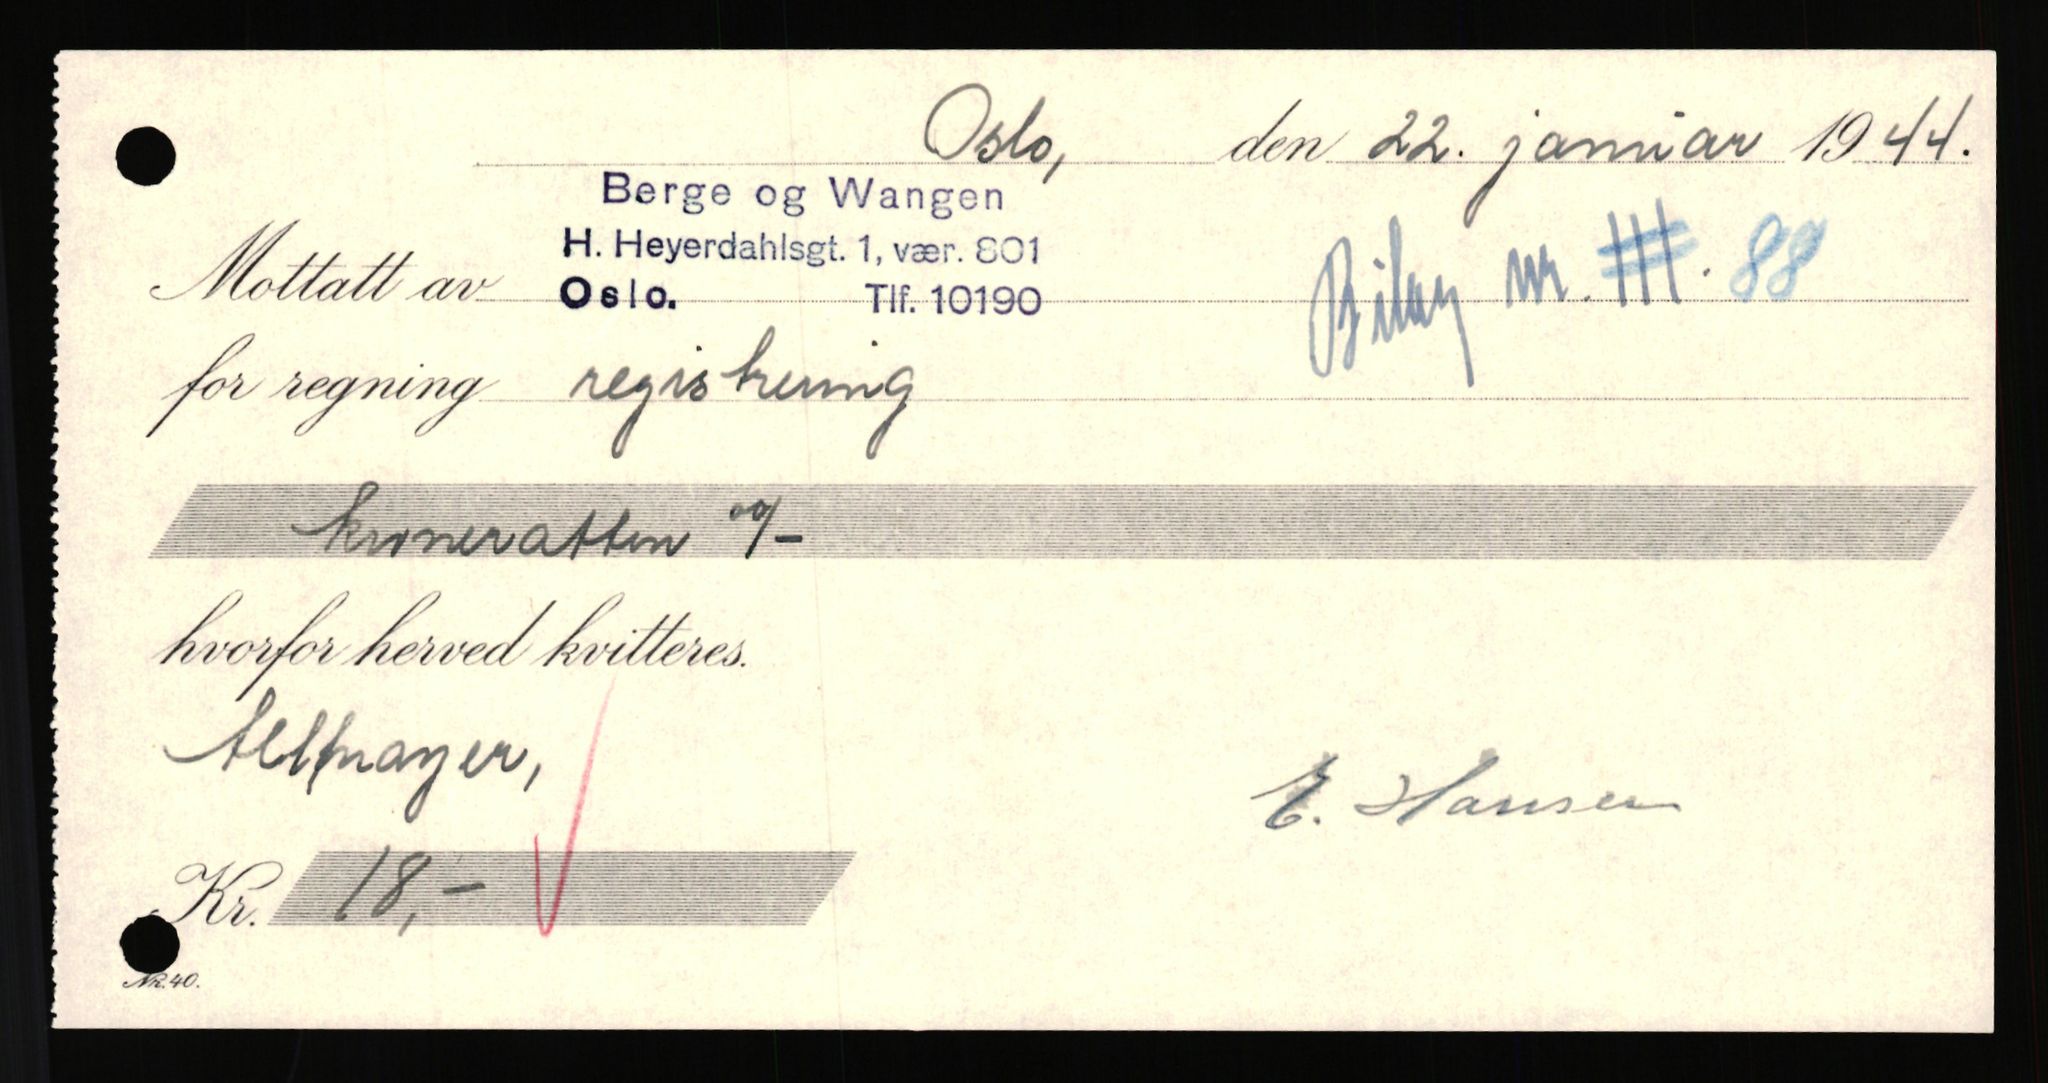 Oslo, den 22. januar 1944.
Berge og Wangen
H. Heyerdahlsgt. 1, vær. 801
Mottatt av Oslo. Tlf. 10190
Bilag nr. III. 88
for regning registrering
kroneratten 00/-
hvorfor herved kvitteres.
Altmayer,
E. Hansen
Kr. 18,-
Nr. 40.